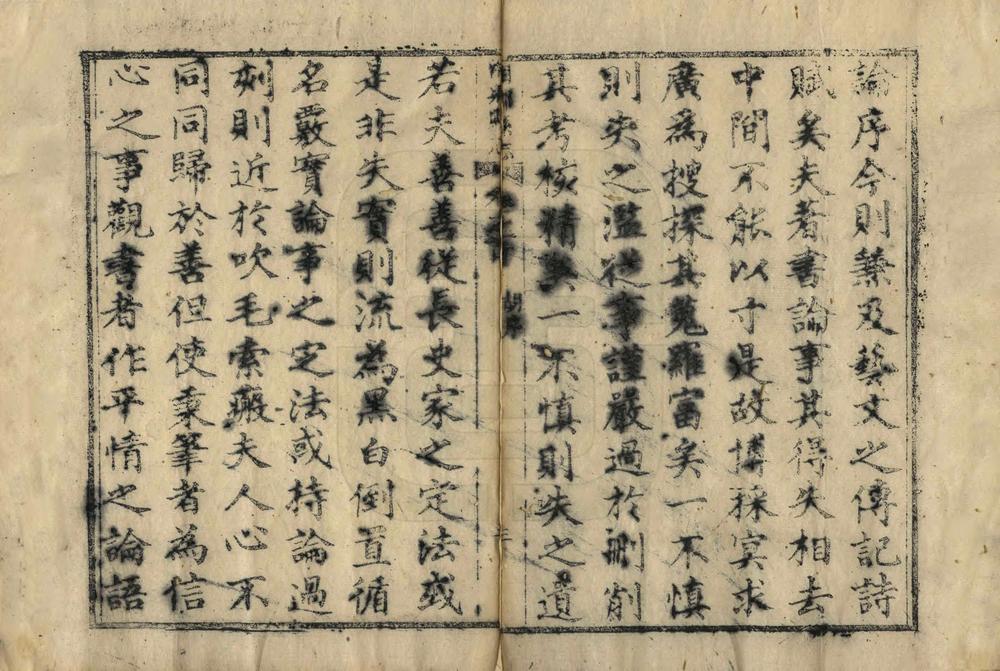 論序今則兼及藝文之傳記詩
賦矣夫著書論事其得失相去
中間不能以寸是故博採冥求
廣為搜探其蒐羅富矣一不慎
則失之濫從事謹嚴過於刪削
其考核精矣一不慎則失之遺
若夫善善從長史家之定法或
是非失實則流為黑白倒置循
名覈實論事之定法或持論過
刻則近於吹毛索瘢夫人心不
同同歸於善但使秉筆者為信
心之事觀書者作平情之論語